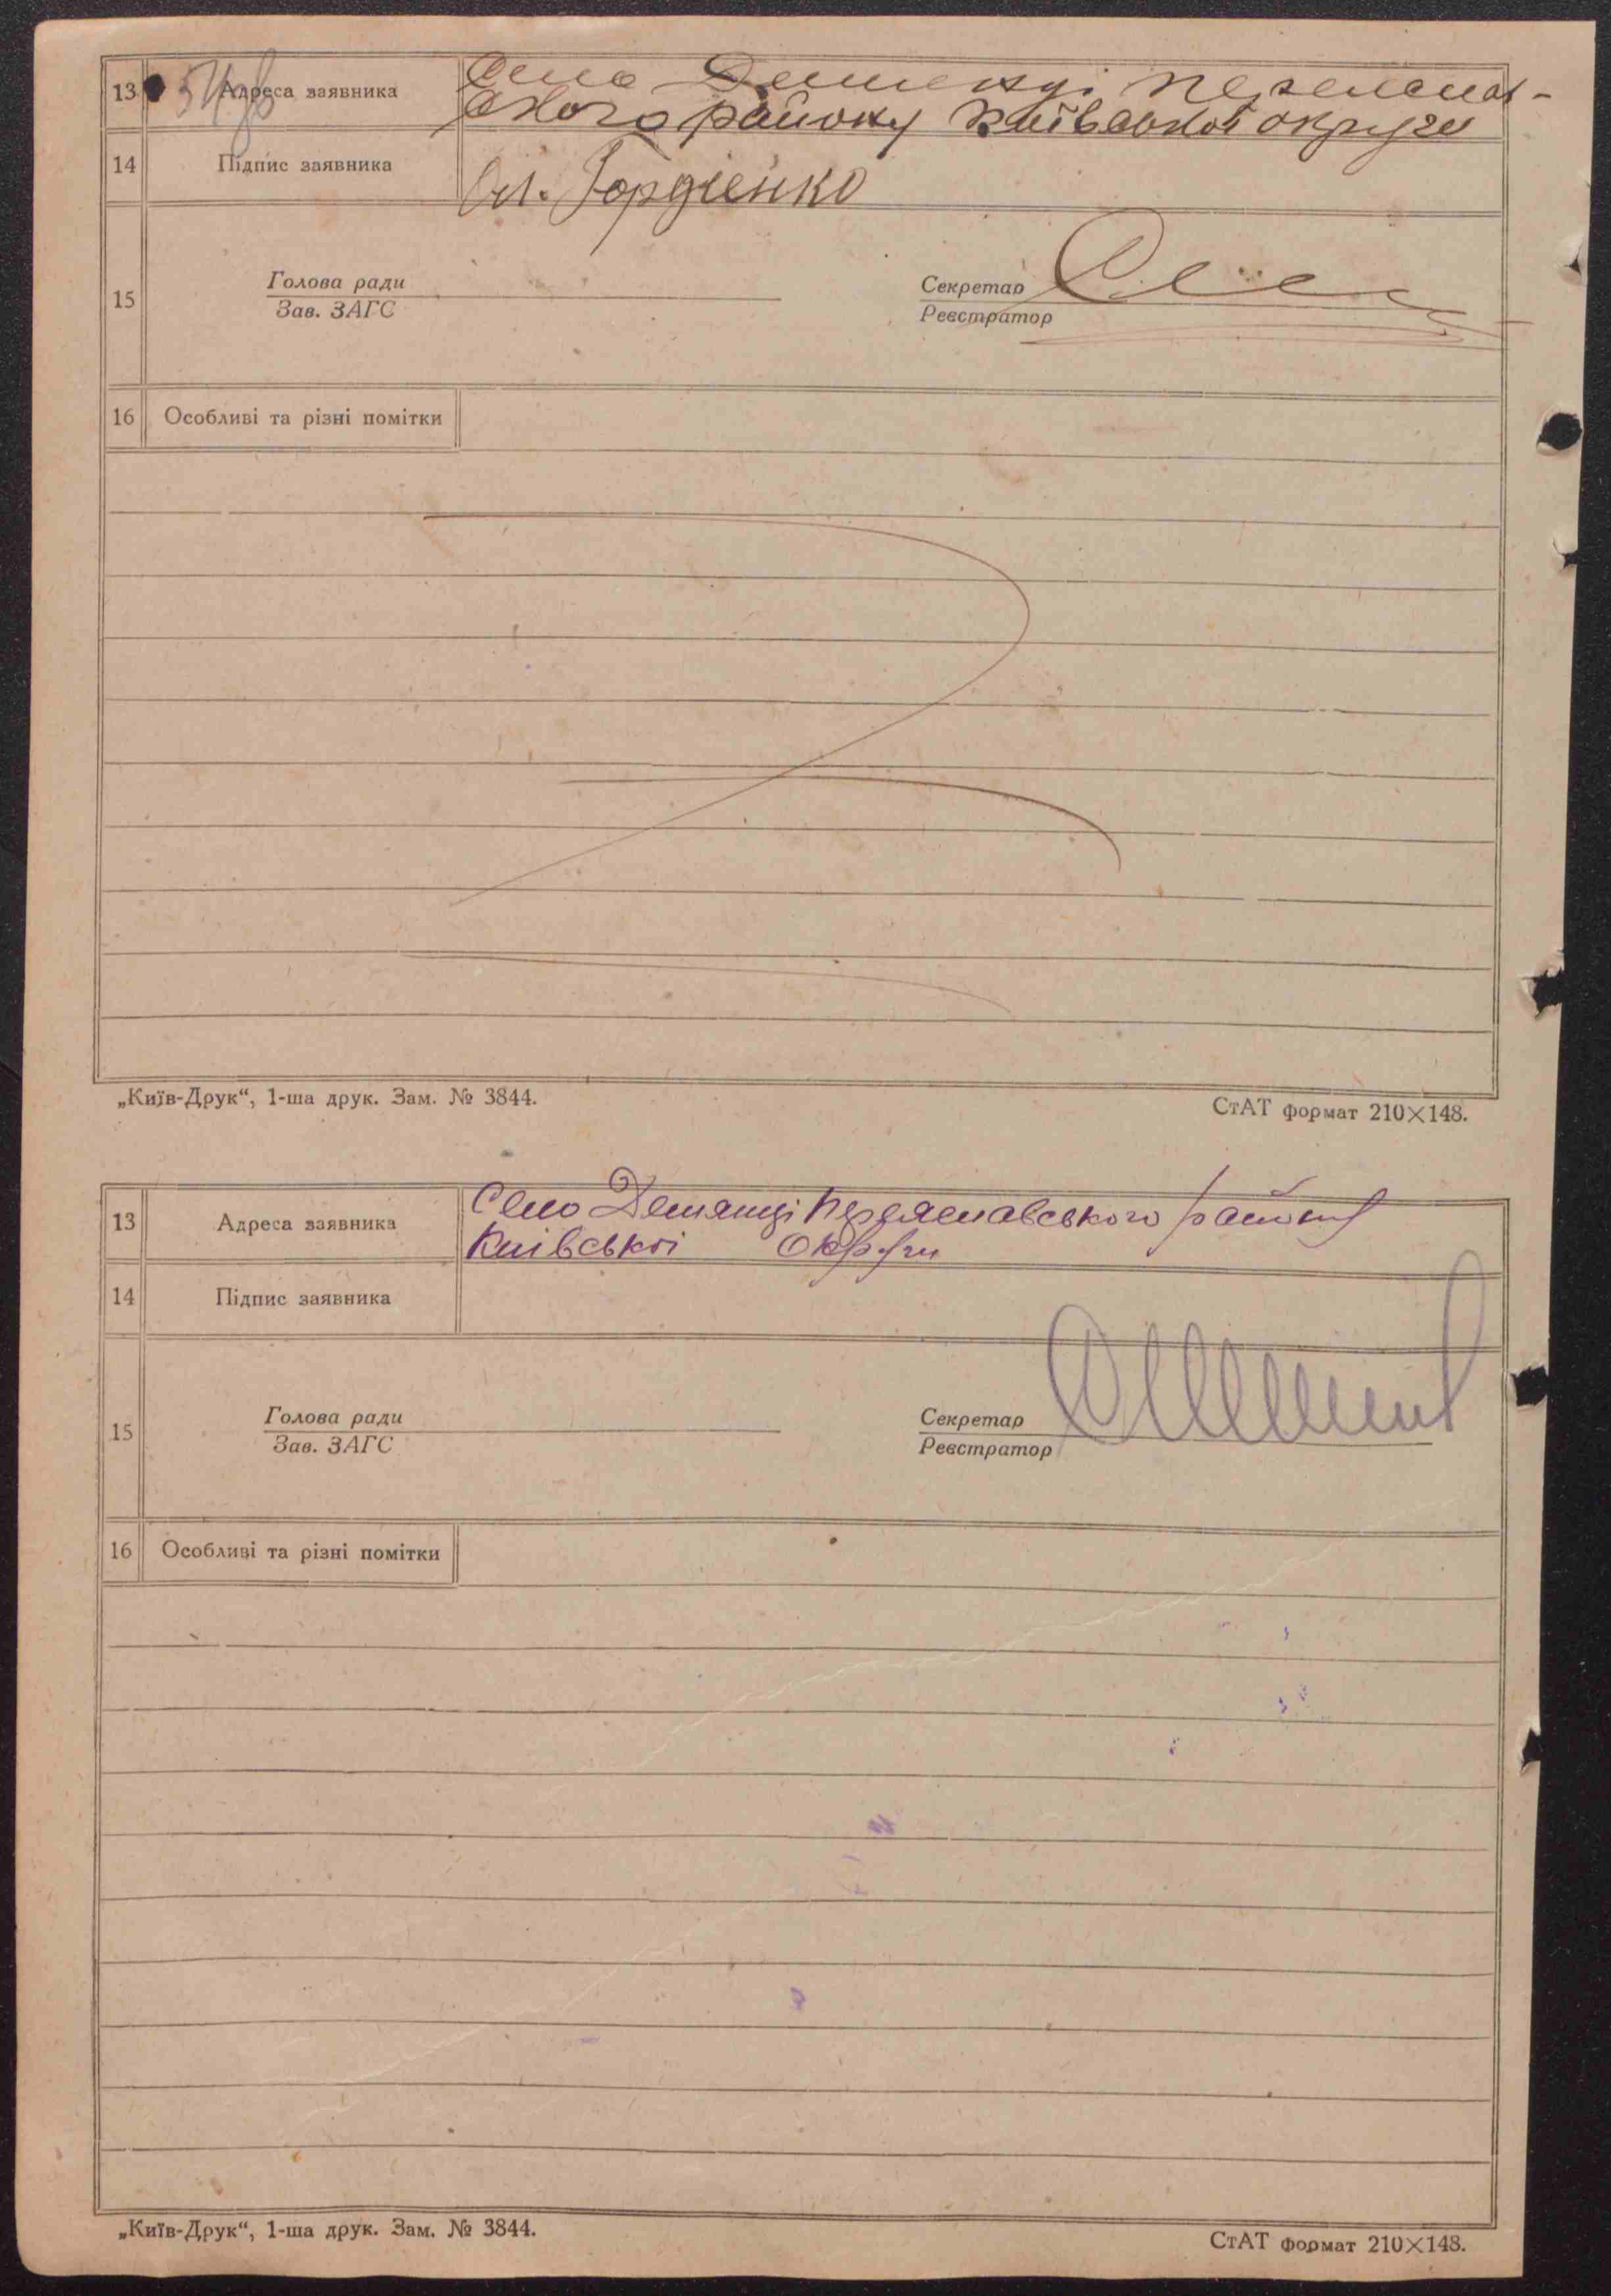 13 Адреса заявника Село Демянці Переяслав-
ського району Київської округи
14 Підпис заявника Ол. Гордієнко
15 Голова ради Секретар
Зав. ЗАГС Реєстратор
16 Особливі та різні помітки
„Київ-Друк“, 1-ша друк. Зам. № 3844. СтАТ формат 210×148.
13 Адреса заявника Село Демянці Переяславського району
Київської Округи
14 Підпис заявника
15 Голова ради Секретар
Зав. ЗАГС Реєстратор
16 Особливі та різні помітки
„Київ-Друк“, 1-ша друк. Зам. № 3844. СтАТ формат 210×148.